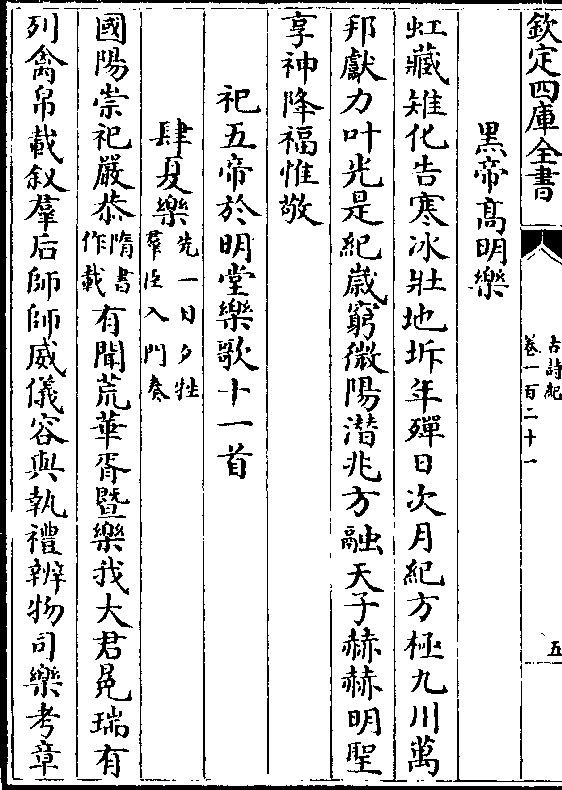 欽定四庫全書
古詩紀
卷一百二十一
五
黑帝髙明樂
虹藏雉化告寒冰壯地坼年殫日次月紀方極九川萬
邦獻力叶光是紀歲窮微陽潜兆方融天子赫赫明聖
享神降福惟敬
祀五帝於明堂樂歌十一首
肆夏樂先一日夕牲羣臣入門奏
國陽崇祀嚴恭隋書作載有聞荒華胥暨樂我大君冕瑞有
列禽帛載叙羣后師師威儀容與執禮辨物司樂考章